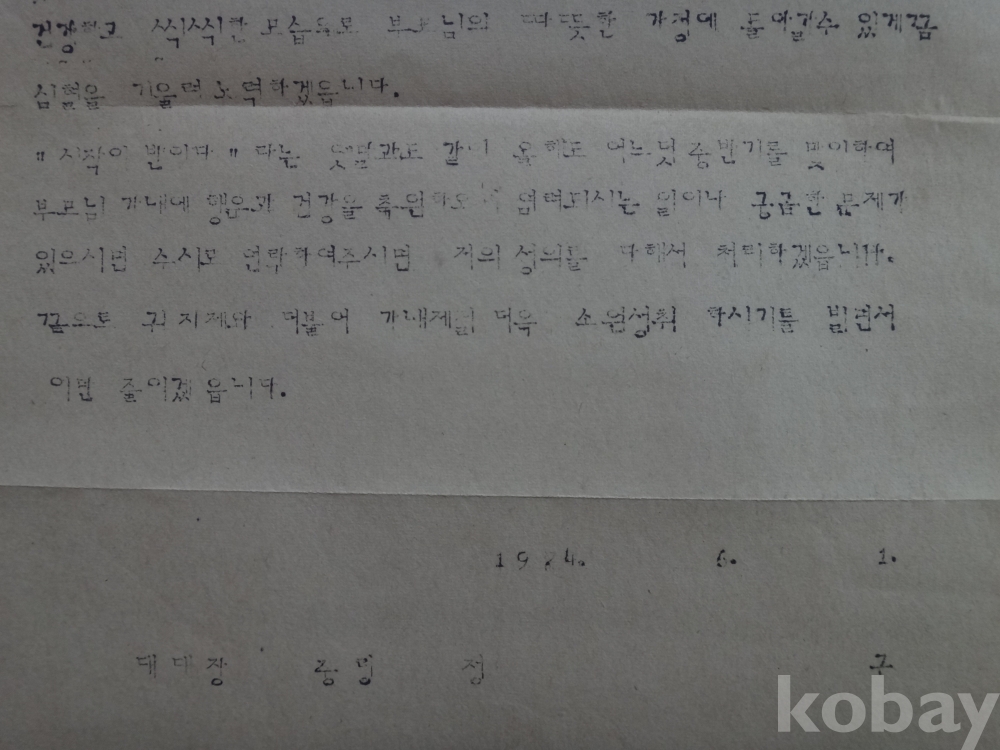 건강하고 씩씩한 모습으로 부모님의 따뜻한 가정에 돌아갈수 있게끔
심혈을 기울며 노력하겠읍니다.
"시작이 반이다" 라는 옛말과도 같이 올해도 어느덧 중반기를 맞이하여
부모님 가내에 행운과 건강을 축원하오며 염려되시는 일이나 궁금한 문제가
있으시면 수시로 연락하여주시면 저의 성의를 다해서 처리하겠읍니다.
끝으로 귀 자제와 더불어 가내제절 더욱 소원성취 하시기를 빌면서
이만 줄이겠읍니다.
6. 1.
대대장 중령 정 구
kobay